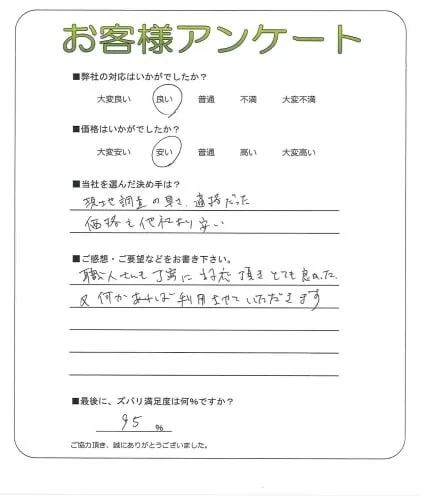 お客様アンケート
■弊社の対応はいかがでしたか？
大変良い 良い 普通 不満 大変不満
■価格はいかがでしたか？
大変安い 安い 普通 高い 大変高い
■当社を選んだ決め手は？
現地調査の早さ、適格だった
価格も他社より安い
■ご感想・ご要望などをお書き下さい。
職人さんも丁寧に対応頂きとても良かった
又何かあれば利用させていただきます
■最後に、ズバリ満足度は何％ですか？
95 ％
ご協力頂き、誠にありがとうございました。